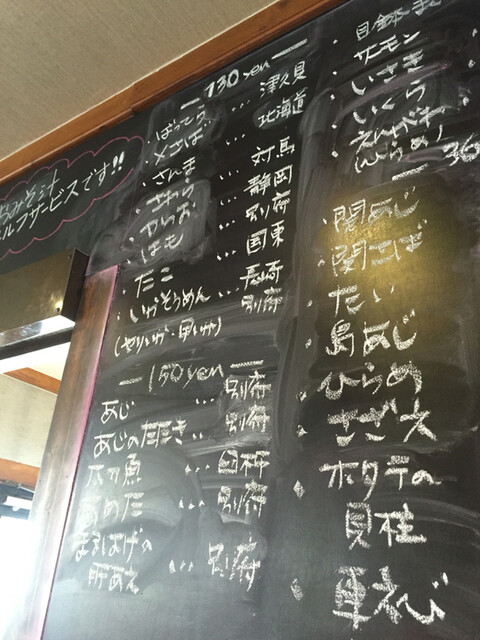 おみそ汁
セルフサービスです!!
130yen
ばってら … 津久見
〆さば … 北海道
さんま
さわら … 対馬
かつお … 静岡
はも … 別府
たこ … 国東
いかそうめん … 長崎
(ヤリいか・甲いか) 別府
150yen
あじ … 別府
あじの たたき … 別府
太刀魚 … 臼杵
… 別府
まるはげの
肝あえ … 別府
目鉢ま
サーモン
いさき
いくら
えんがわ
(ひらめ)
36
関あじ
関さば
たい
島あじ
ひらめ
さざえ
ホタテの
貝柱
車えび